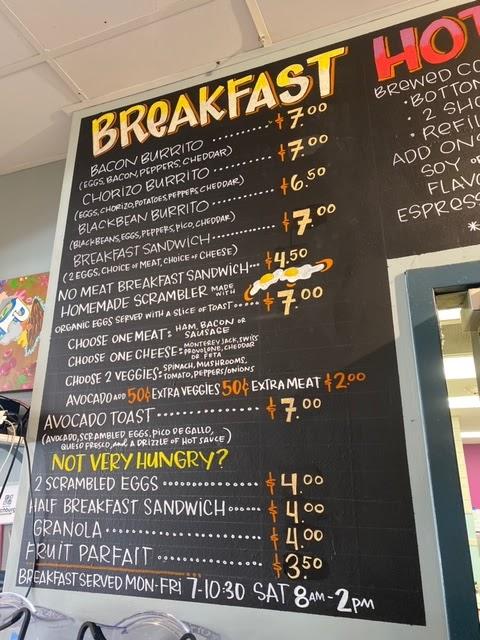 BREAKFAST
BACON BURRITO ........ $7.00
(EGGS, BACON, PEPPERS, CHEDDAR)
CHORIZO BURRITO ........ $7.00
(EGGS, CHORIZO, POTATOES, PEPPERS, CHEDDAR)
BLACKBEAN BURRITO ........ $6.50
(BLACK BEANS, EGGS, PEPPERS, PICO, CHEDDAR)
BREAKFAST SANDWICH ........ $7.00
(2 EGGS, CHOICE OF MEAT, CHOICE OF CHEESE)
NO MEAT BREAKFAST SANDWICH... $4.50
HOMEMADE SCRAMBLER MADE WITH
ORGANIC EGGS SERVED WITH A SLICE OF TOAST.... $7.00
CHOOSE ONE MEAT: HAM, BACON OR SAUSAGE
CHOOSE ONE CHEESE: MONTEREY JACK, SWISS PROVOLONE, CHEDDAR OR FETA
CHOOSE 2 VEGGIES: SPINACH, MUSHROOMS, TOMATO, PEPPERS/ONIONS
AVOCADO ADD 50¢ EXTRA VEGGIES 50¢ EXTRA MEAT $2.00
AVOCADO TOAST ............ $7.00
(AVOCADO, SCRAMBLED EGGS, PICO DE GALLO,
QUESO FRESCO, AND A DRIZZLE OF HOT SAUCE)
NOT VERY HUNGRY?
2 SCRAMBLED EGGS ............ $4.00
HALF BREAKFAST SANDWICH ..... $4.00
GRANOLA .................. $4.00
FRUIT PARFAIT ............ $3.50
BREAKFAST SERVED MON-FRI 7-10:30 SAT 8AM-2PM
HOT
BREWED CO
• BOTTOM
• 2 SHO
• REFIL
ADD ON
SOY OR
FLAVO
ESPRESS
*